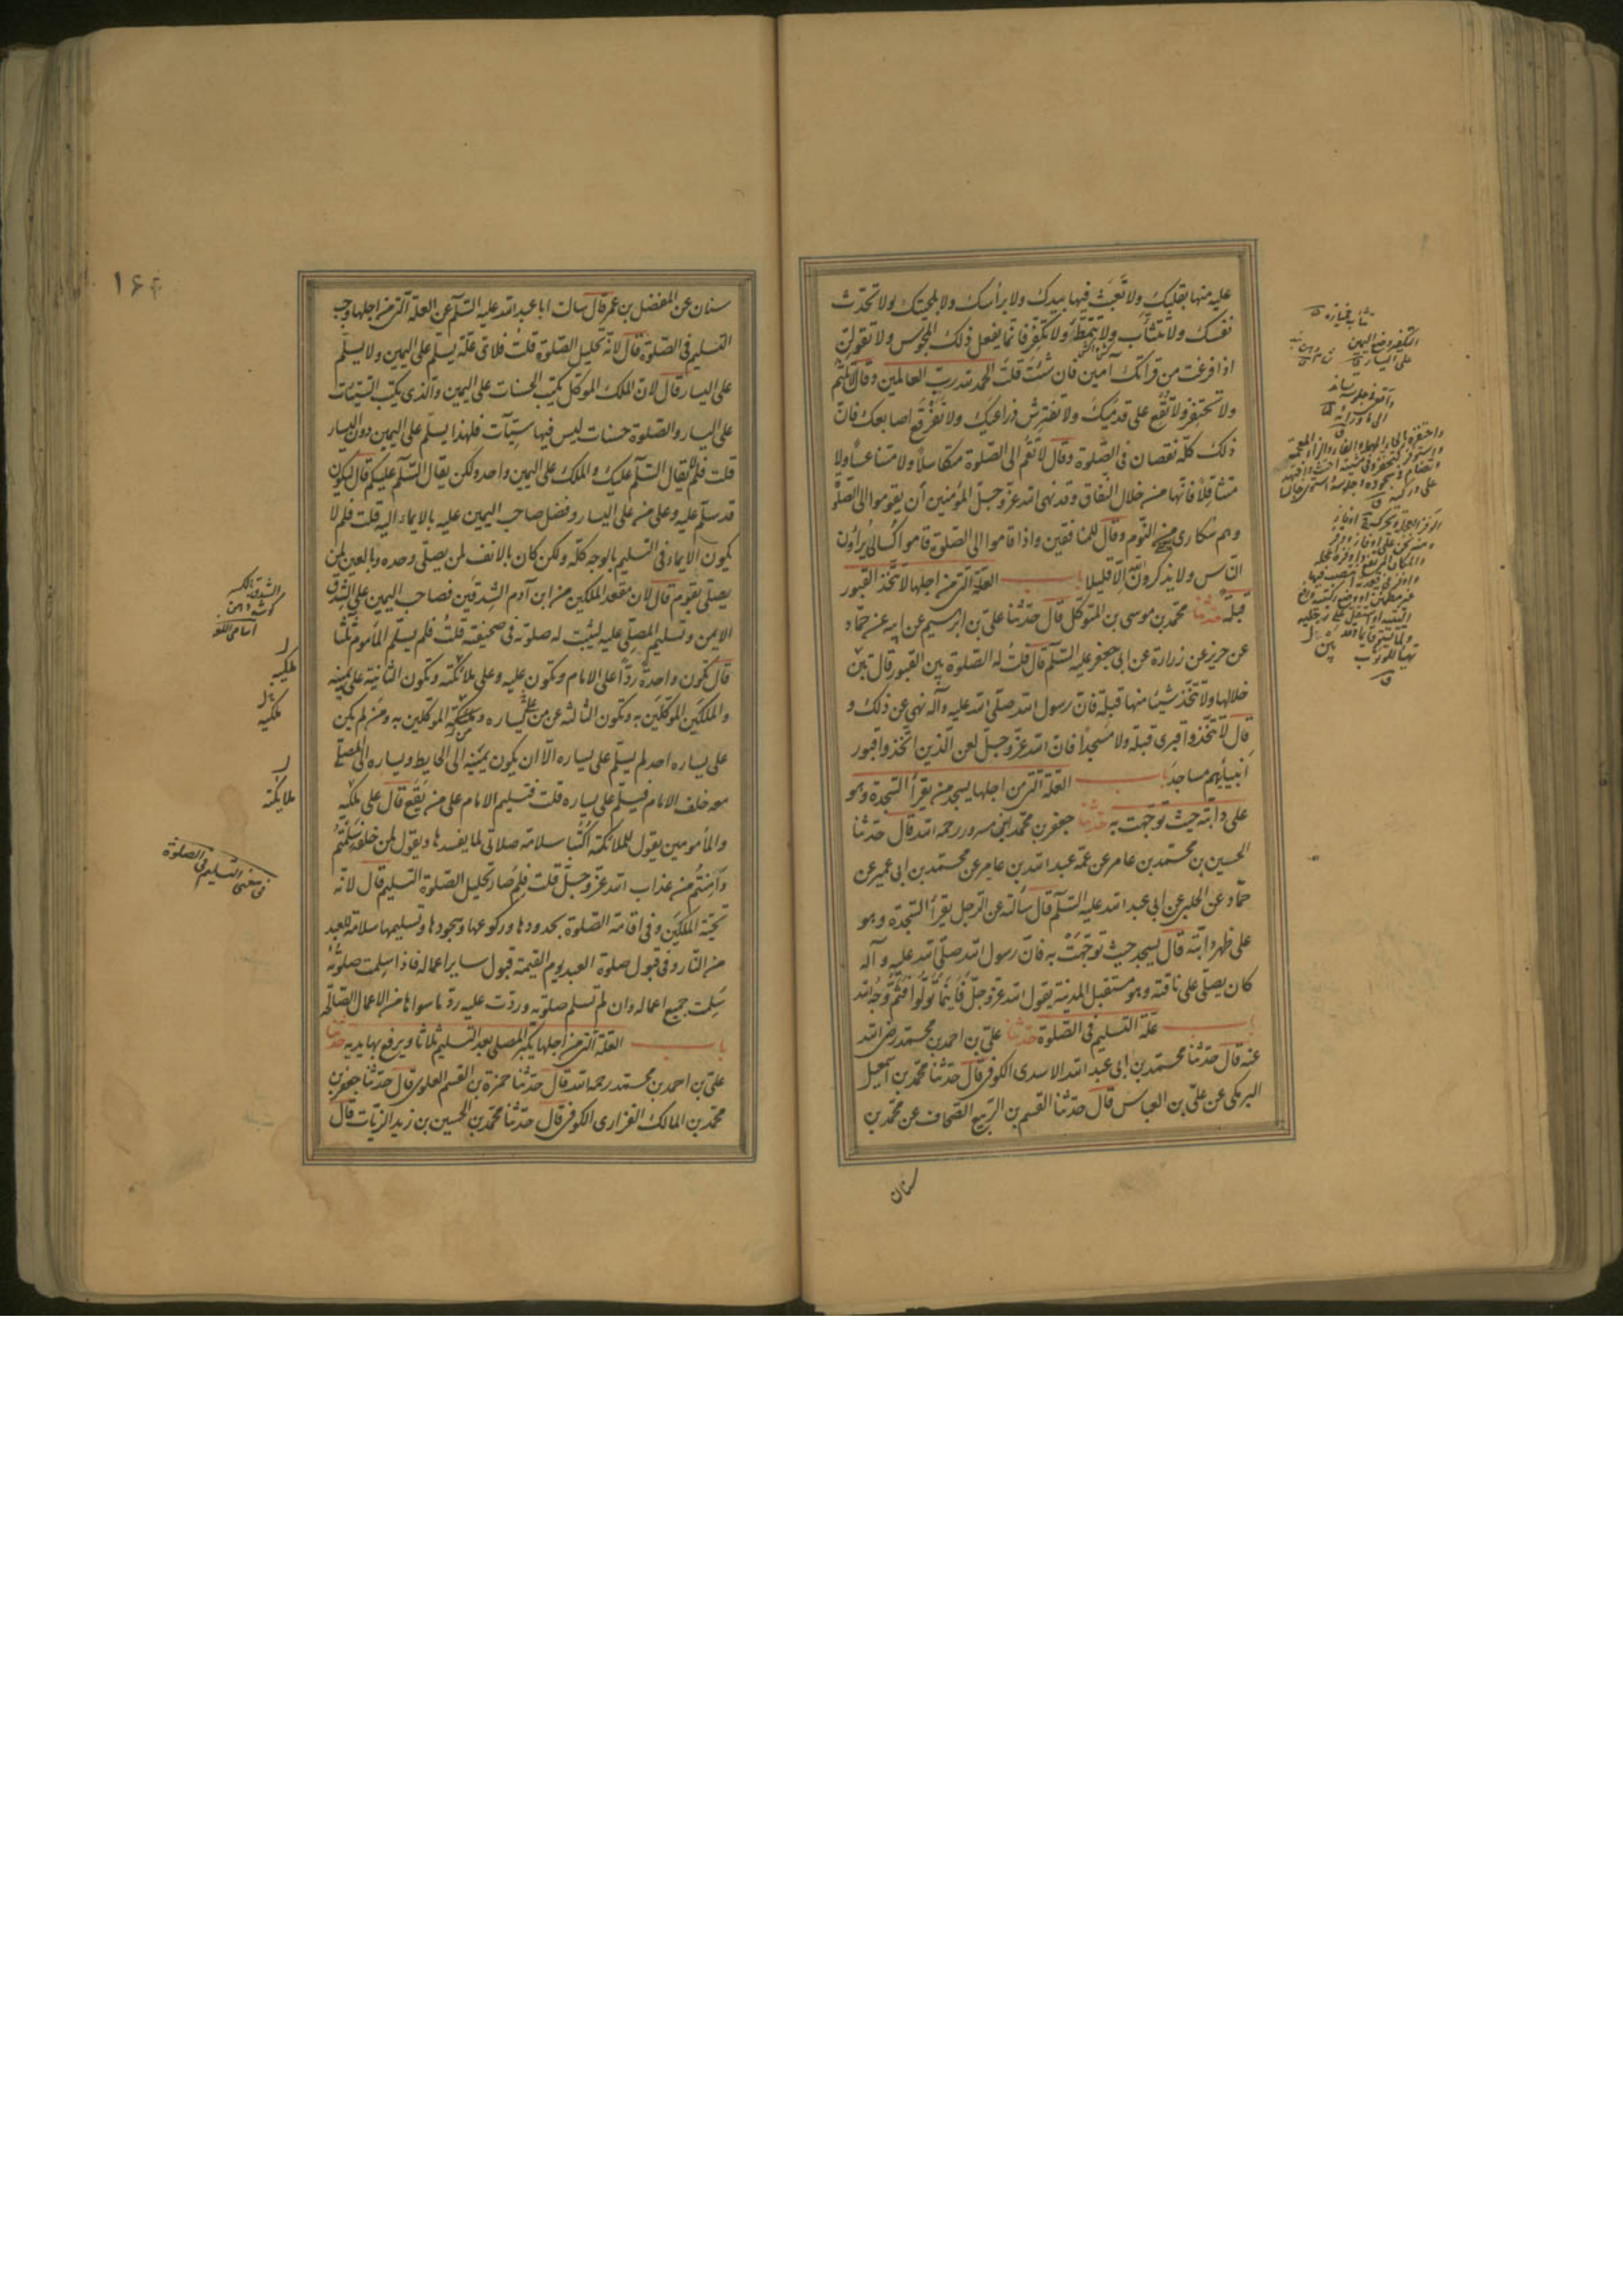 عليه منها بقلبك ولا تعبث فيها بيدك ولا برأسك ولا بلحيتك ولا تحدث
نفسك ولا تتثأب ولا تتمط ولا تكفر فانما يفعل ذلك المجوس ولا تقولن
اذا فرغت من قرائتك آمين فان شئت قلت الحمد لله رب العالمين وقال لا تلثم
ولا تحتفز ولا تقع على قدميك ولا تفترش ذراعيك ولا تفرقع اصابعك فان
ذلك كله نقصان فى الصلوة وقال لا تقم الى الصلوة متكاسلا ولا متناعسا ولا
متثاقلا فانها من خلال النفاق وقد نهى الله عز وجل المؤمنين أن يقوموا الى الصلوة
وهم سكارى من النوم وقال للمنافقين واذا قاموا الى الصلوة قاموا كسالى يراؤن
الناس ولا يذكرون الله الا قليلا باب العلة التى من اجلها لا تتخذ القبور
قبلة حدثنا محمد بن موسى بن المتوكل قال حدثنا على بن ابرهيم عن ابيه عن حماد
عن حريز عن زرارة عن ابى جعفر عليه السلم قال قلت له الصلوة بين القبور قال بين
خلالها ولا تتخذ شيئا منها قبلة فان رسول الله صلى الله عليه وآله نهى عن ذلك و
قال لا تتخذوا قبرى قبلة ولا مسجدا فان الله عز وجل لعن الذين اتخذوا قبور
انبيائهم مساجد باب العلة التى من اجلها يسجد من يقرأ السجدة وهو
على دابته حيث توجهت به حدثنا جعفر بن محمد بن مسرور رحمه الله قال حدثنا
الحسين بن محمد بن عامر عن عمه عبد الله بن عامر عن محمد بن ابى عمير عن
حماد عن الحلبى عن ابى عبد الله عليه السلم قال سألته عن الرجل يقرأ السجدة وهو
على ظهر دابته قال يسجد حيث توجهت به فان رسول الله صلى الله عليه وآله
كان يصلى على ناقته وهو مستقبل المدينة يقول الله عز وجل فأينما تولوا فثم وجه الله
باب علة التسليم فى الصلوة حدثنا على بن احمد بن محمد رضى الله
عنه قال حدثنا محمد بن ابى عبد الله الاسدى الكوفى قال حدثنا محمد بن اسمعيل
البرمكى عن على بن العباس قال حدثنا القسم بن الربيع الصحاف عن محمد بن
سنان
تثأب خميازه
التكفير وضع اليمين
على اليسار
سنان عن المفضل بن عمر قال سالت ابا عبد الله عليه السلم عن العلة التى من اجلها وجب
التسليم فى الصلوة قال لانه تحليل الصلوة قلت فلاى علة يسلم على اليمين ولا يسلم
على اليسار قال لان الملك الموكل يكتب الحسنات على اليمين والذى يكتب السيئات
على اليسار والصلوة حسنات ليس فيها سيئآت فلهذا يسلم على اليمين دون اليسار
قلت فلم لا يقال السلم عليك والملك على اليمين واحد ولكن يقال السلم عليكم قال ليكون
قد سلم عليه وعلى من على اليسار وفضل صاحب اليمين عليه بالايماء اليه قلت فلم لا
يكون الايماء فى التسليم بالوجه كله ولكن كان بالانف لمن يصلى وحده وبالعين لمن
يصلى بقوم قال لان مقعد الملكين من ابن آدم الشدقين فصاحب اليمين على الشدق
الايمن وتسليم المصلى عليه ليثبت له صلوته فى صحيفته قلت فلم يسلم المأموم ثلثا
قال تكون واحدة ردا على الامام وتكون عليه وعلى ملائكته وتكون الثانية على يمينه
والملكين الموكلين به وتكون الثالثة على من على يساره وملكيه الموكلين به ومن لم يكن
على يساره احد لم يسلم على يساره الا ان يكون يمينه الى الحايط ويساره الى المصلى
معه خلف الامام فيسلم على يساره قلت فتسليم الامام على من يقع قال على ملكيه
والمأمومين يقول لملائكته اكتبا سلامة صلاتى لما يفسدها ويقول لمن خلفه سلمتم
وأمنتم من عذاب الله عز وجل قلت فلم صار تحليل الصلوة التسليم قال لانه
تحية الملكين وفى اقامة الصلوة بحدودها وركوعها وسجودها وتسليمها سلامة للعبد
من النار وفى قبول صلوة العبد يوم القيمة قبول ساير اعماله فاذا سلمت صلوته
سلمت جميع اعماله وان لم تسلم صلوته وردت عليه رد ما سواها من الاعمال الصالحة
باب العلة التى من اجلها يكبر المصلى بعد التسليم ثلاثا ويرفع بها يديه حدثنا
على بن احمد بن محمد رحمه الله قال حدثنا حمزة بن القسم العلوى قال حدثنا جعفر بن
محمد بن المالك الفزارى الكوفى قال حدثنا محمد بن الحسين بن زيد الزيات قال
الشدق بالكسر
كوشه دهن
اسامى اللغه
ملكيه
ملائكته
فى معنى التسليم فى الصلوة